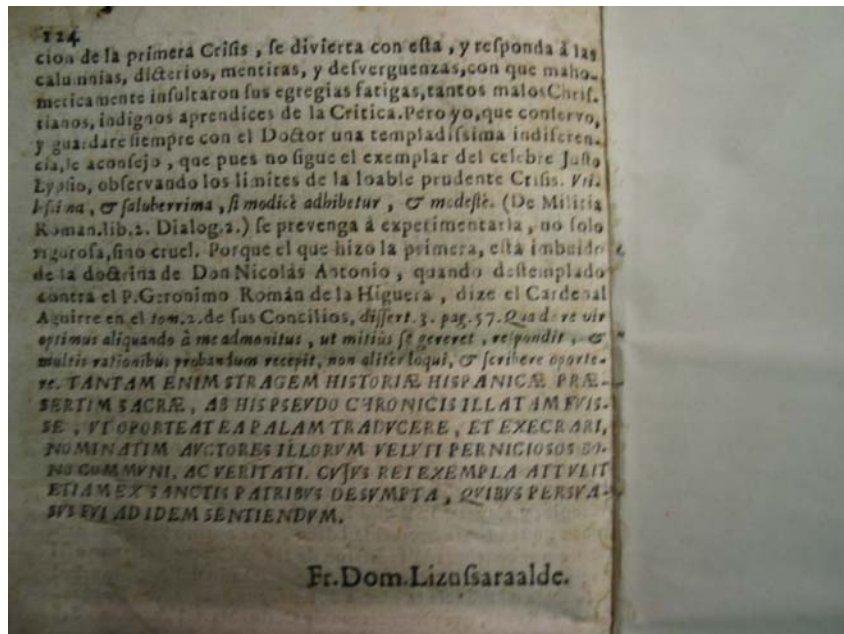 124
cion de la primera Crisis, se divierta con esta, y responda à las
calumnias, dicterios, mentiras, y desverguenzas, con que maho-
meticamente insultaron sus egregias fatigas, tantos malos Chris-
tianos, indignos aprendices de la Critica. Pero yo, que conservo,
y guardare siempre con el Doctor una templadissima indiferen-
cia, le aconsejo, que pues no sigue el exemplar del celebre Justo
Lypsio, observando los limites de la loable prudente Crisis. Vti-
lissima, & saluberrima, si modicè adhibetur, & modestè. (De Militia
Roman. lib. 2. Dialog. 2.) se prevenga à experimentarla, no solo
rigurosa, sino cruel. Porque el que hizo la primera, està imbuido
de la doctrina de Don Nicolás Antonio, quando destemplado
contra el P. Geronimo Román de la Higuera, dize el Cardenal
Aguirre en el tom. 2. de sus Concilios, dissert. 3. pag. 57. Qua de re vir
optimus aliquando à me admonitus, ut mitius se gereret, respondit, &
multis rationibus probandum recepit, non aliter loqui, & scribere oporte-
re. TANTAM ENIM STRAGEM HISTORIÆ HISPANICÆ PRÆ-
SERTIM SACRÆ, AB HIS PSEVDO CHRONICIS ILLATAM FVIS-
SE, VT OPORTEAT EA PALAM TRADVCERE, ET EXECRARI,
NOMINATIM AVCTORES ILLORVM VELVTI PERNICIOSOS BO-
NO COMMVNI, AC VERITATI. CVJVS REI EXEMPLA ATTVLIT
ETIAM EX SANCTIS PATRIBVS DESVMPTA, QVIBVS PERSVA-
SVS FVI AD IDEM SENTIENDVM.
Fr. Dom. Lizussaraalde.